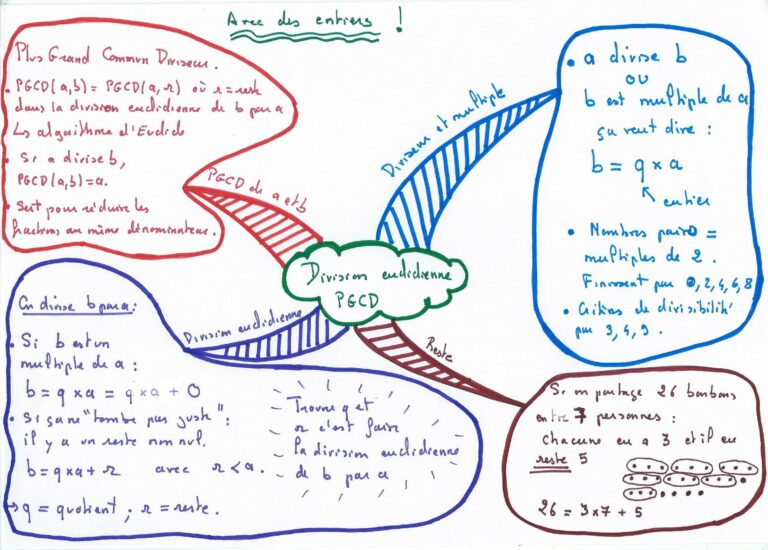 Avec des entiers !
Plus Grand Commun Diviseur.
• PGCD(a,b) = PGCD(a,r) où r = reste
dans la division euclidienne de b par a
Ls algorithme d'Euclide
• Si a divise b,
PGCD(a,b) = a.
• Sert pour réduire les
fractions au même dénominateur.
PGCD de a et b
Diviseur et multiple
• a divise b
ou
b est multiple de a
ça veut dire :
b = q × a
entier
• Nombres pairs =
multiples de 2.
Finissent par 0, 2, 4, 6, 8
• Critères de divisibilité
par 3, 4, 9.
Division euclidienne
PGCD
Division euclidienne
On divise b par a :
• Si b est un
multiple de a :
b = q × a = q × a + 0
• Si ça ne "tombe pas juste" :
il y a un reste non nul.
b = q × a + r avec r < a.
→ q = quotient ; r = reste.
Trouver q et
r c'est faire
la division euclidienne
de b par a
Reste
Si on partage 26 bonbons
entre 7 personnes :
chacune en a 3 et il en
reste 5
26 = 3 × 7 + 5